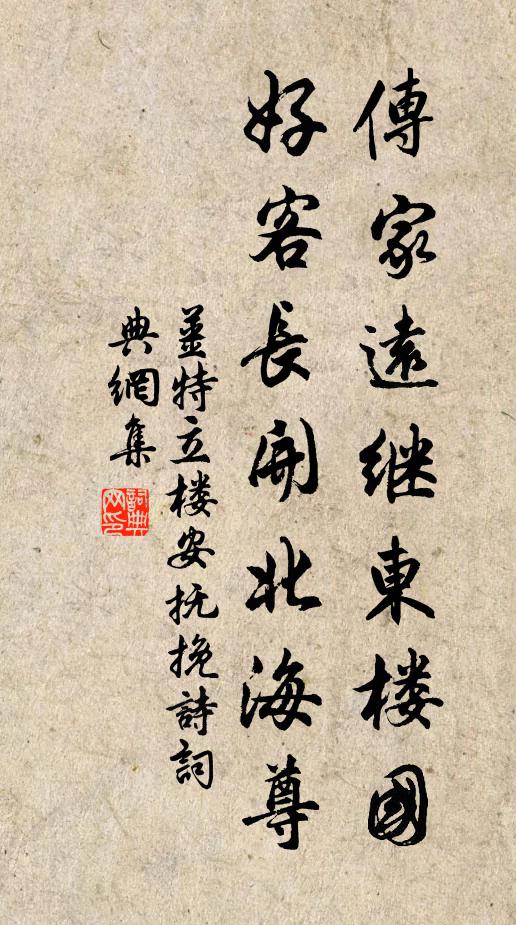 傳家遠継東楼國
好客長開北海尊
姜特立楼安抚挽詩詞
典網集
詞典
网印